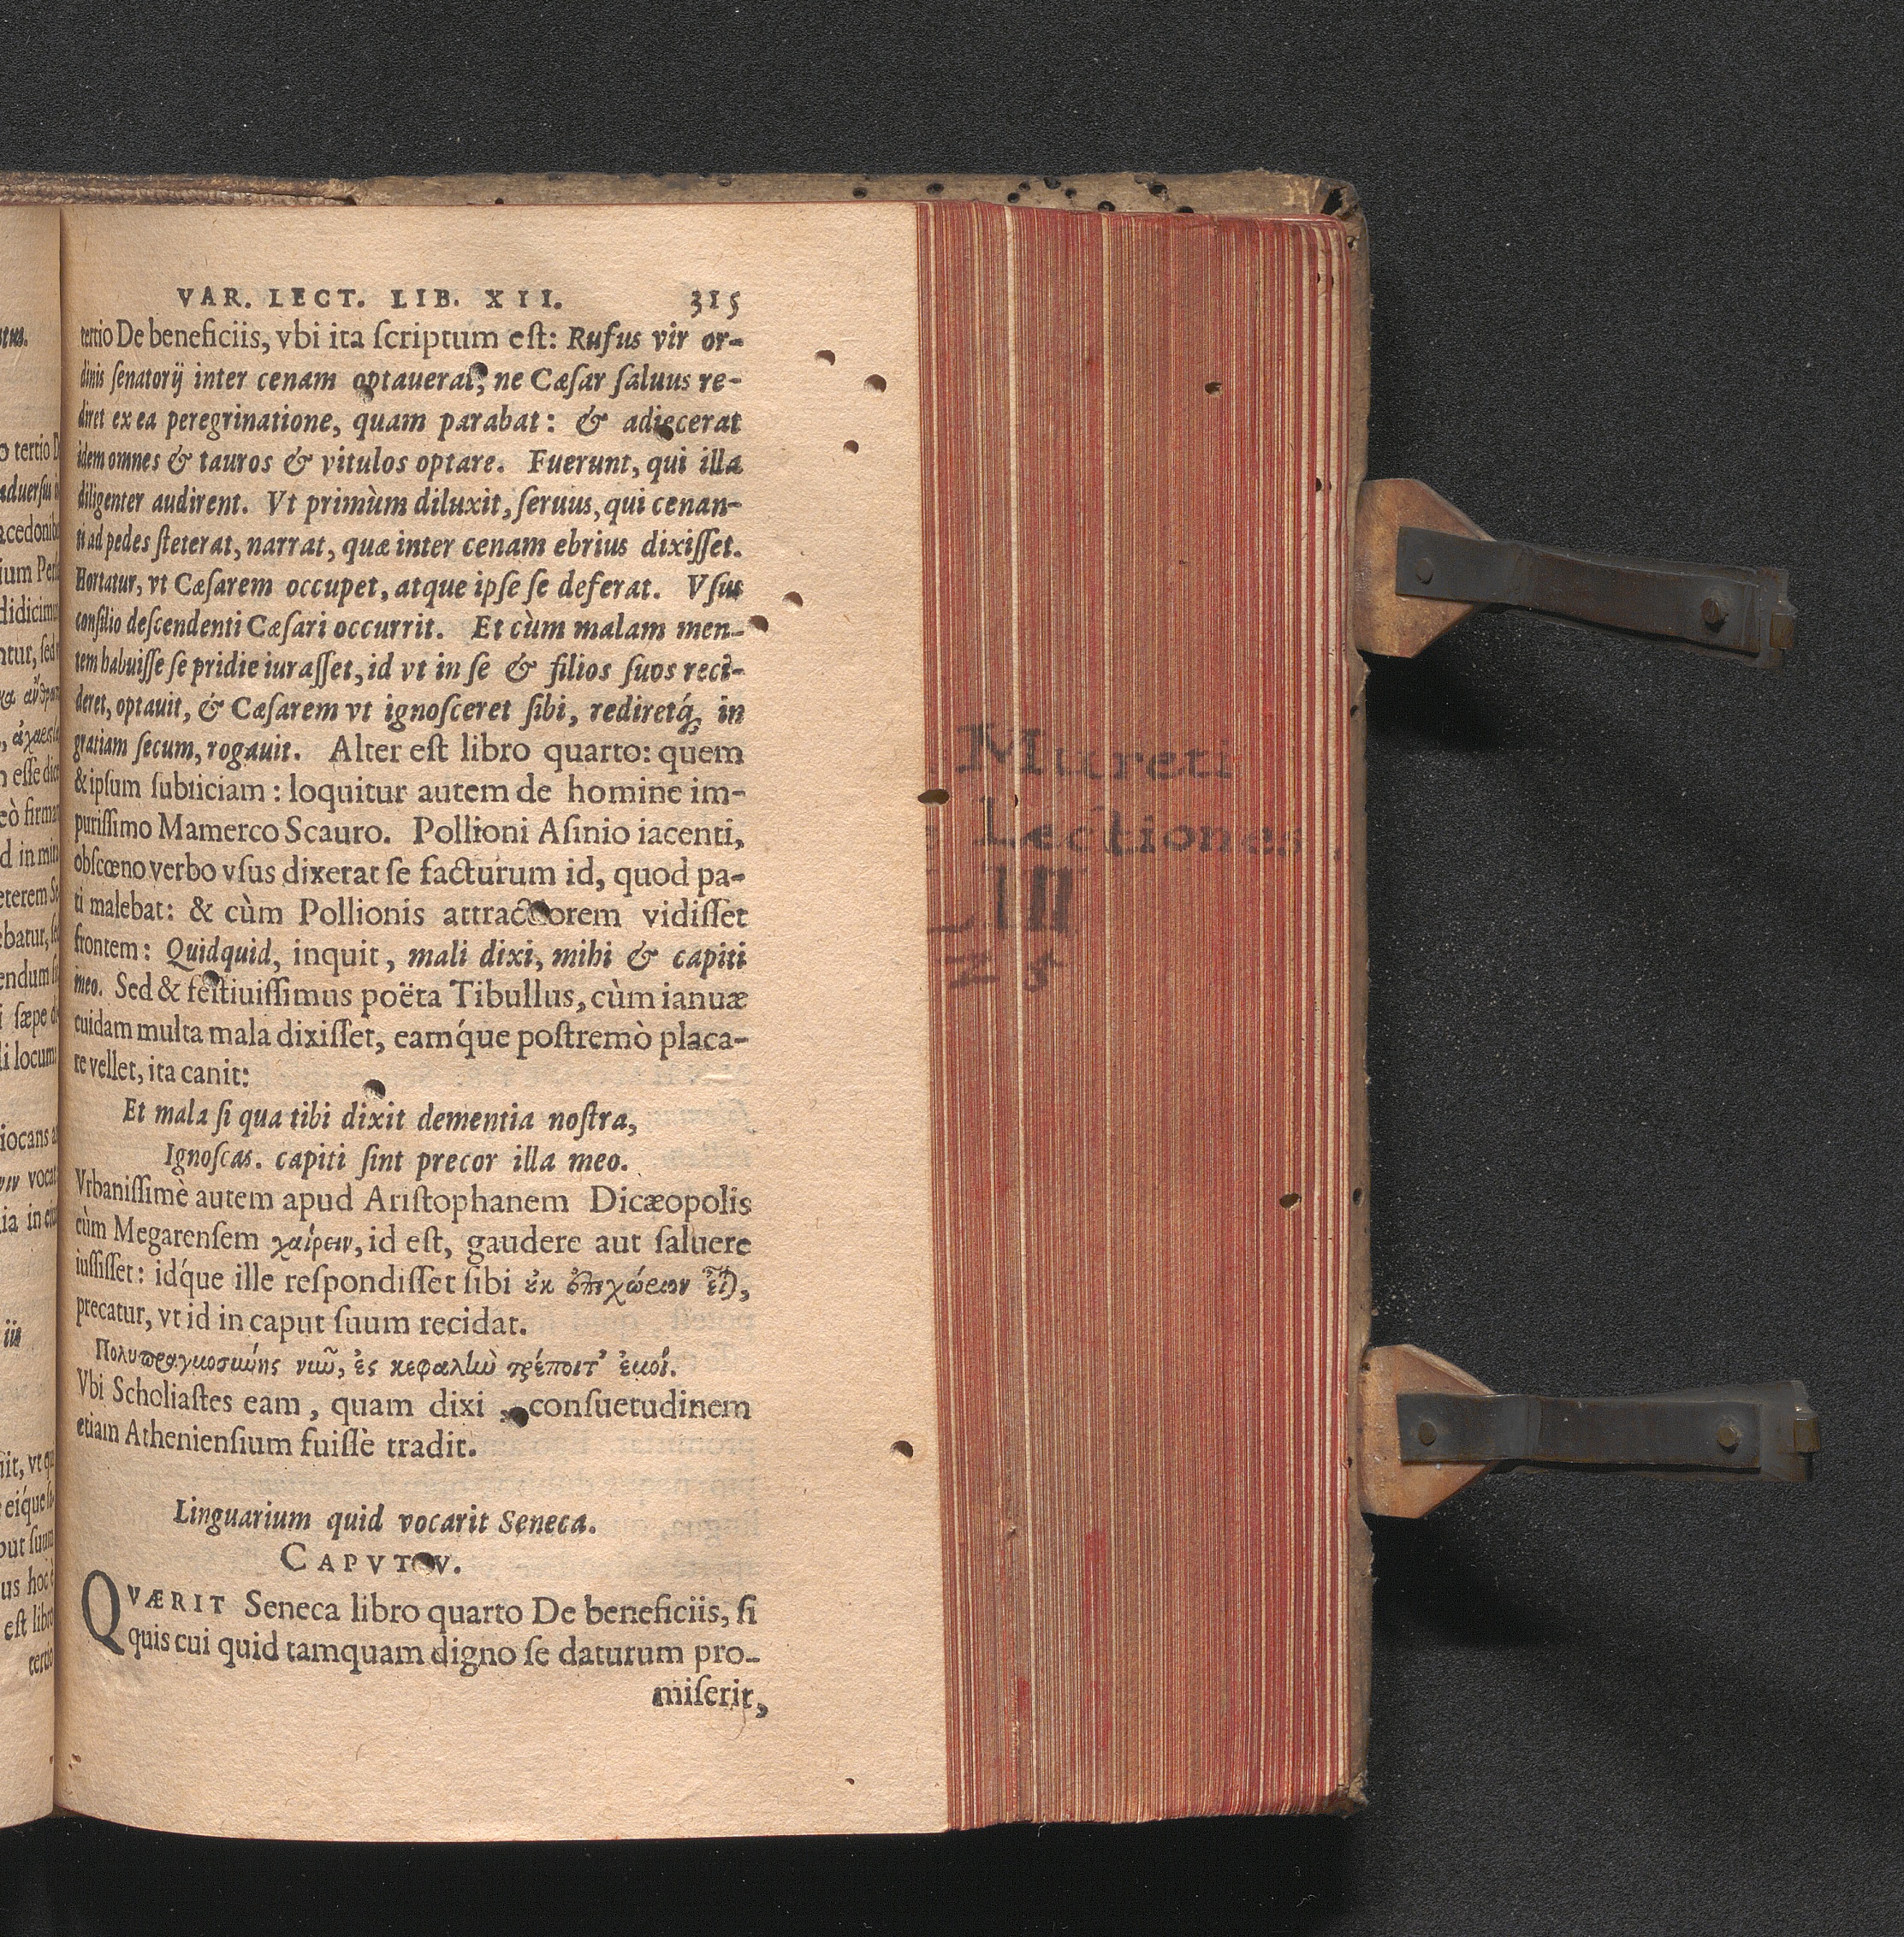 VAR. LECT. LIB. XII. 315
tertio De beneficiis, vbi ita ſcriptum eſt: Rufus vir or-
dinis ſenatorij inter cenam optauerat, ne Cæſar ſaluus re-
diret ex ea peregrinatione, quam parabat: & adiecerat
idem omnes & tauros & vitulos optare. Fuerunt, qui illa
diligenter audirent. Vt primùm diluxit, ſeruus, qui cenan-
ti ad pedes ſteterat, narrat, quæ inter cenam ebrius dixiſſet.
Hortatur, vt Cæſarem occupet, atque ipſe ſe deferat. Vſus
conſilio deſcendenti Cæſari occurrit. Et cùm malam men-
tem habuiſſe ſe pridie iuraſſet, id vt in ſe & filios ſuos reci-
deret, optauit, & Cæſarem vt ignoſceret ſibi, rediretq́; in
gratiam ſecum, rogauit. Alter eſt libro quarto: quem
& ipſum ſubiiciam: loquitur autem de homine im-
puriſſimo Mamerco Scauro. Pollioni Aſinio iacenti,
obſcœno verbo vſus dixerat ſe facturum id, quod pa-
ti malebat: & cùm Pollionis attractiorem vidiſſet
frontem: Quidquid, inquit, mali dixi, mihi & capiti
meo. Sed & feſtiuiſſimus poëta Tibullus, cùm ianuæ
cuidam multa mala dixiſſet, eamq́ue poſtremò placa-
re vellet, ita canit:
Et mala ſi qua tibi dixit dementia noſtra,
Ignoſcas. capiti ſint precor illa meo.
Vrbaniſſimè autem apud Ariſtophanem Dicæopolis
cùm Megarenſem χαίρειν, id eſt, gaudere aut ſaluere
iuſſiſſet: idq́ue ille reſpondiſſet ſibi ἐκ ἐπιχώριον εἶ),
precatur, vt id in caput ſuum recidat.
Πολυπραγμοσιώης νιῶ, ἐς κεφαλίω τρέποιτ᾽ ἐμοί.
Vbi Scholiaſtes eam, quam dixi, conſuetudinem
etiam Athenienſium fuiſſe tradit.
Linguarium quid vocarit Seneca.
CAPVT V.
QVÆRIT Seneca libro quarto De beneficiis, ſi
quis cui quid tamquam digno ſe daturum pro-
miſerit,
Mureti
Lectiones
III
25